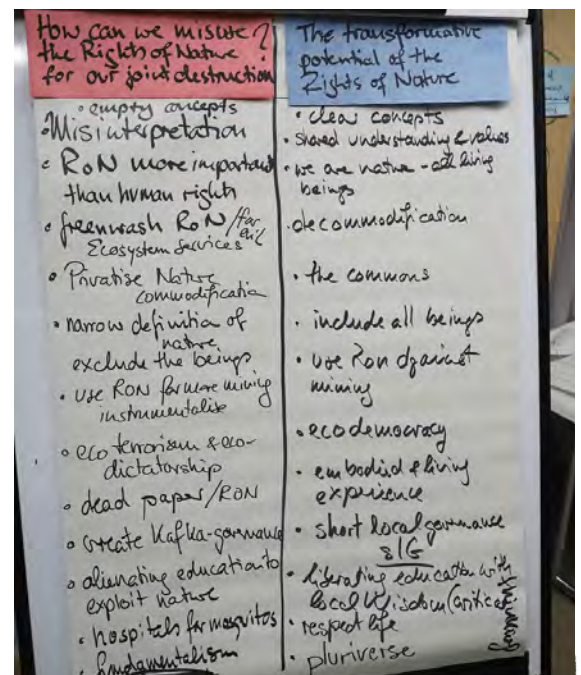 How can we misuse ?
the Rights of Nature
for our joint destruction
• empty concepts
• Misinterpretation
• RoN more important
than human rights
• freenwash RoN/for
Ecosystem Services
• Privatise Nature
commodification
• narrow definition of
nature
exclude the beings
• use RON for more mining
instrumentalise
• eco terrorism & eco-
dictatorship
• dead paper/RON
• create Kafka-governance
• alienating education to
exploit nature
• hospitals for mosquitos
• fundamentalism
The transformative
potential of the
Rights of Nature
• clear concepts
• shared understanding & values
• we are nature - all living
beings
• decommodification
• the commons
• include all beings
• use Ron against
mining
• ecodemocracy
• embodied & living
experience
• short local governance
• liberating education with
local wisdom (critical
thinking
• respect life
• pluriverse